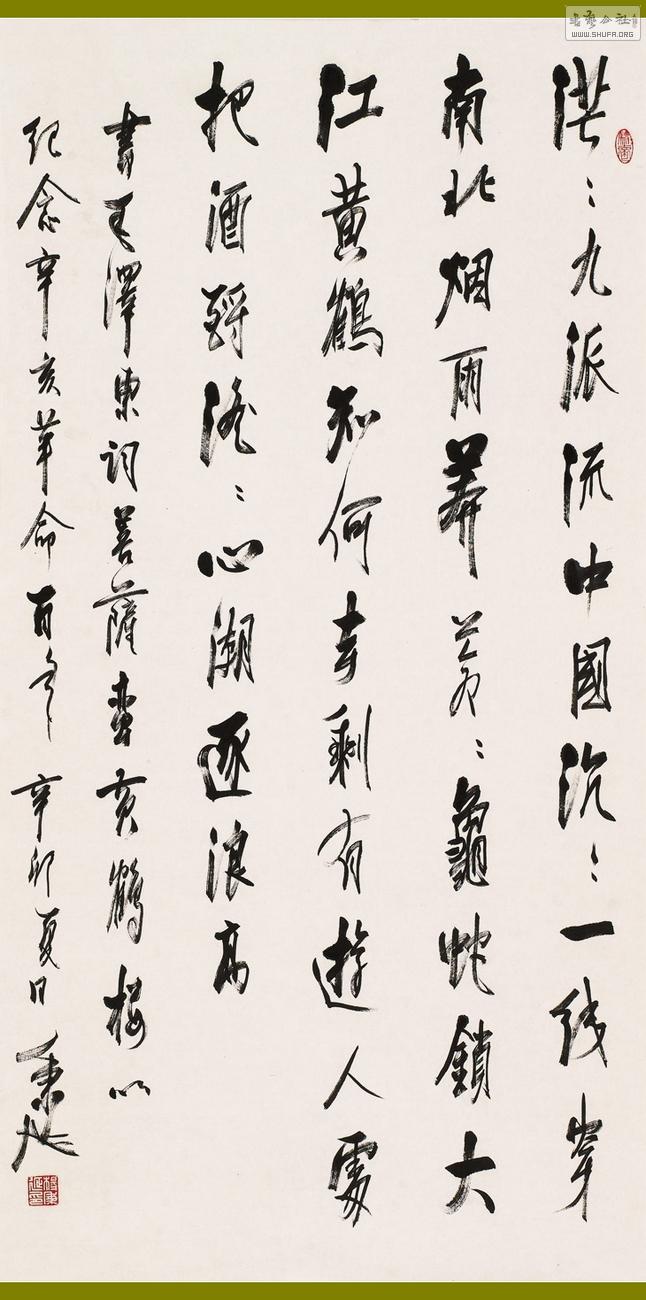 茫〻九派流中國沉〻一线穿
南北烟雨莽苍〻龜蛇鎖大
江黄鶴知何去剩有遊人處
把酒酹滔〻心潮逐浪高
書毛澤東词菩薩蛮黄鹤楼以
纪念辛亥革命百年 辛卯夏日
書藝公社
WWW.SHUFA.ORG